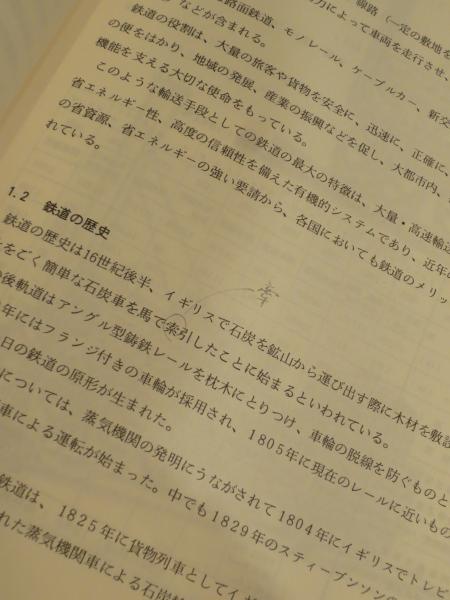 線路（一定の敷地を
路面鉄道、モノレール、ケーブルカー、新交
力によって車両を走行させ、
などが含まれる。
鉄道の役割は、大量の旅客や貨物を安全に、迅速に、正確に、
の便をはかり、地域の発展、産業の振興などを促し、大都市内、
機能を支える大切な使命をもっている。
このような輸送手段としての鉄道の最大の特徴は、大量・高速輸送
省エネルギー性、高度の信頼性を備えた有機的システムであり、近年の
の省資源、省エネルギーの強い要請から、各国においても鉄道のメリッ
れている。
1.2 鉄道の歴史
鉄道の歴史は16世紀後半、イギリスで石炭を鉱山から運び出す際に木材を敷設
をごく簡単な石炭車を馬で索引したことに始まるといわれている。
牽
後軌道はアングル型鋳鉄レールを枕木にとりつけ、車輪の脱線を防ぐものと
年にはフランジ付きの車輪が採用され、1805年に現在のレールに近いもの
日の鉄道の原形が生まれた。
については、蒸気機関の発明にうながされて1804年にイギリスでトレビ
車による運転が始まった。中でも1829年のスティーブンソンの
鉄道は、1825年に貨物列車としてイギ
れた蒸気機関車による石炭